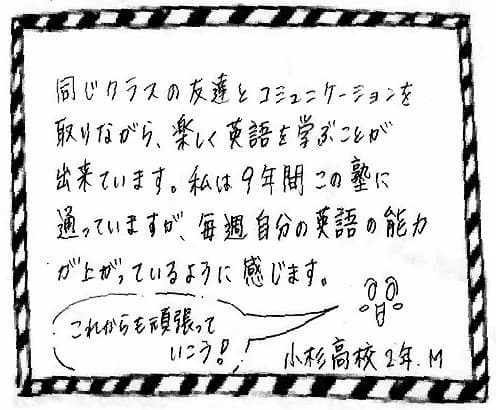 同じクラスの友達とコミュニケーションを
取りながら、楽しく英語を学ぶことが
出来ています。私は9年間この塾に
通っていますが、毎週自分の英語の能力
が上がっているように感じます。
これからも頑張って
いこう!
小杉高校2年.M